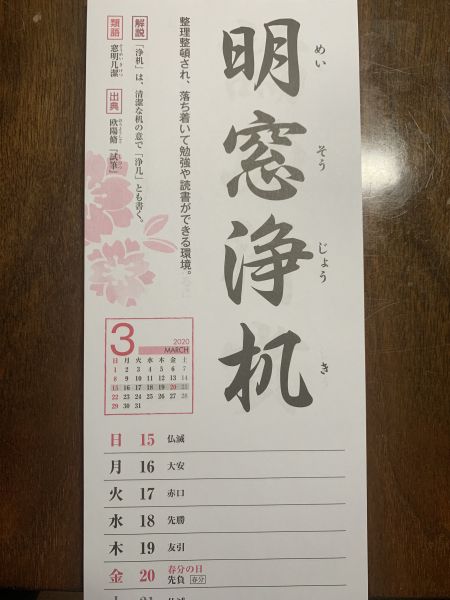 明窓浄机
めい そう じょう き
整理整頓され、落ち着いて勉強や読書ができる環境。
解説 「浄机」は、清潔な机の意で「浄几」とも書く。
類語 窓明几潔 出典 欧陽脩『試筆』
3 2020 MARCH
日 月 火 水 木 金 土
1 2 3 4 5 6 7
8 9 10 11 12 13 14
15 16 17 18 19 20 21
22 23 24 25 26 27 28
29 30 31
日 15 仏滅
月 16 大安
火 17 赤口
水 18 先勝
木 19 友引
金 20 春分の日
先負 春分